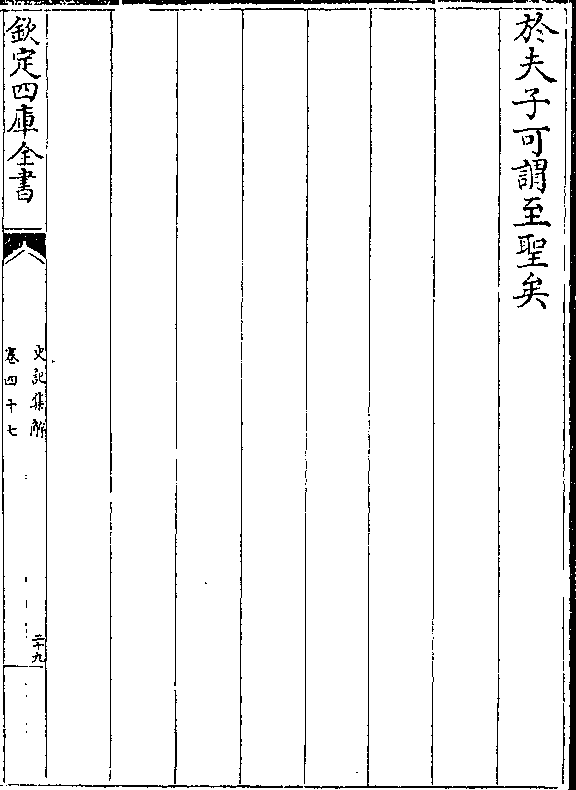 於夫子可謂至聖矣
欽定四庫全書
史記集解
卷四十七
二十九